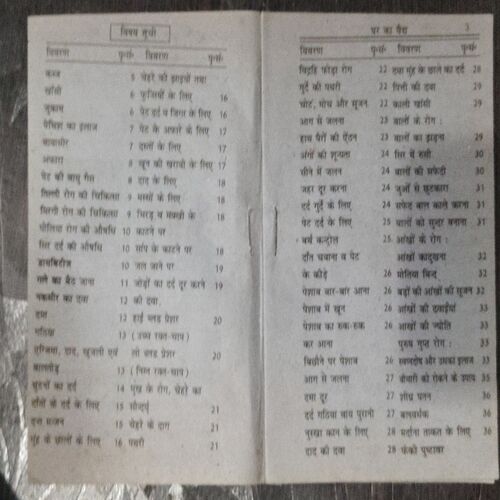 विषय सूची
विवरण पृ०सं० विवरण पृ०सं०
कब्ज 5 चेहरे की झाइयाँ तथा
खाँसी 6 फुन्सियों के लिए 16
जुकाम 6 पेट दर्द व जिगर के लिए 16
पेचिश का इलाज 7 पेट के अफारे के लिए 17
बावासीर 7 दस्तों के लिए 17
अफारा 8 खून की खराबी के लिए 17
पेट की वायु गैस 8 दाद के लिए 18
तिल्ली रोग की चिकित्सा 9 मस्सों के लिए 18
मिरगी रोग की चिकित्सा 9 भिरड़ व मक्खी के 18
पीलिया रोग की औषधि 10 काटने पर
सिर दर्द की औषधि 10 सांप के काटने पर 18
डायबिटीज 10 जल जाने पर 19
गले का बैठ जाना 11 जोड़ों का दर्द दूर करने 19
नकसीर का दवा 12 की दवा.
दमा 12 हाई ब्लड प्रेशर 20
गठिया 13 (उच्च रक्त-चाप)
एग्जिमा, दाद, खुजली एवं लो ब्लड प्रेशर 20
13 (निम्न रक्त-चाप)
घुटनों का दर्द 14 मुख के रोग, चेहरे का
दाँतों के दर्द के लिए 15 सौन्दर्य 21
दन्त मंजन 15 चेहरे के दाग 21
मुंह के छालों के लिए 16 पथरी 21
घर का वैद्य 3
विवरण पृ०सं० विवरण पृ०सं०
फोड़ा रोग 22 तथा मुंह के छाले का दर्द 28
गुर्दे की पथरी 22 पित्ती की दवा 29
चोट, मोच और सूजन 22 काली खाँसी 29
आग से जलना 23 बालों के रोग :
हाथ पैरों की ऐंठन 23 बालों का झड़ना 29
अंगों की शून्यता 24 सिर में रूसी 30
सीने में जलन 24 बालों की सफेदी 30
जहर दूर करना 24 जुओं से छुटकारा 31
दर्द गुर्दे के लिए 24 सफेद बाल काले करना 31
पेट दर्द 25 बालों को सुन्दर बनाना 31
बर्थ कन्ट्रोल 25 आंखों के रोग :
दाँत चबाना व पेट आंखों का दुखना 32
के कीड़े 26 मोतिया बिन्द 32
पेशाब बार-बार आना 26 बड़ों की आंखों की सूजन 32
पेशाब में खून 26 आंखों की दवाईयां 33
पेशाब का रुक-रुक 26 आंखों की ज्योति 33
कर आना पुरुष गुप्त रोग : 33
बिछौने पर पेशाब 26 स्वप्नदोष और उसका इलाज 33
आग से जलना 27 बीमारी को रोकने के उपाय 35
दमा दूर 27 शीघ्र पतन 36
दर्द गठिया बाय पुरानी 27 बालवर्धक 36
नुस्खा कान के लिए 28 मर्दाना ताकत के लिए 36
दाद की दवा 28